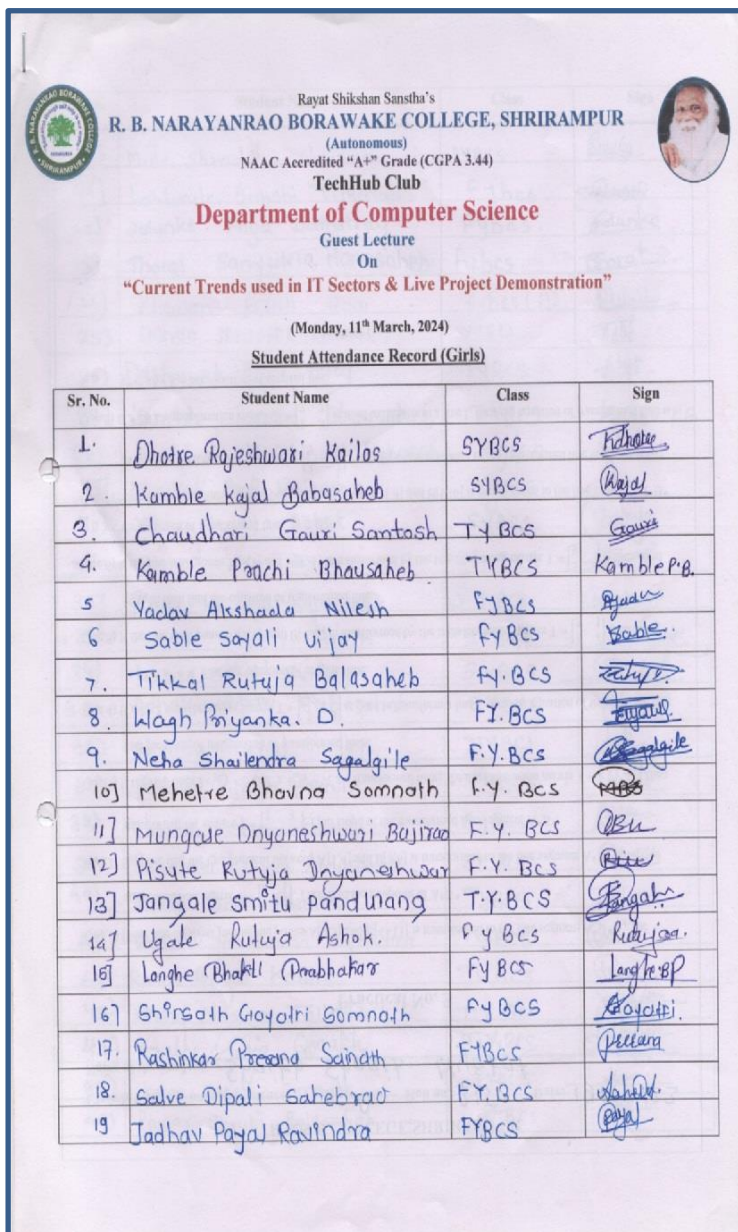 R. B. NARAYANRAO BORAWAKE COLLEGE
SHRIRAMPUR
Rayat Shikshan Sanstha's
R. B. NARAYANRAO BORAWAKE COLLEGE, SHRIRAMPUR
(Autonomous)
NAAC Accredited “A+” Grade (CGPA 3.44)
TechHub Club
Department of Computer Science
Guest Lecture
On
“Current Trends used in IT Sectors & Live Project Demonstration”
(Monday, 11th March, 2024)
Student Attendance Record (Girls)
Sr. No. Student Name Class Sign
1. Dhotre Rajeshwari Kailas SYBCS
2. Kamble Kajal Babasaheb SYBCS Kajal
3. Chaudhari Gauri Santosh TYBCS Gauri
4. Kamble Prachi Bhausaheb TYBCS Kamble P.B.
5 Yadav Akshada Nilesh FYBCS
6 Sable Sayali Vijay FYBCS Sable
7. Tikkal Rutuja Balasaheb Fy.BCS
8. Wagh Priyanka. D. FY.BCS
9. Neha Shailendra Sagalgile F.Y.BCS Sagalgile
10] Mehetre Bhavna Somnath F.Y. BCS
11] Mungase Dnyaneshwari Bajirao F.Y. BCS
12] Pisute Rutuja Dnyaneshwar F.Y. BCS
13] Jangale Smitu Pandurang T.Y.BCS
14] Ugale Rutuja Ashok. F Y BCS Rutujaa.
15] Langhe Bhakti Prabhakar FyBCS Langhe.BP
16] Shirsath Gayatri Somnath FyBCS Gayatri.
17. Rashinkar Prerana Sainath FYBCS Prerana
18. Salve Dipali Sahebrao FY.BCS
19 Jadhav Payal Ravindra FYBCS Payal